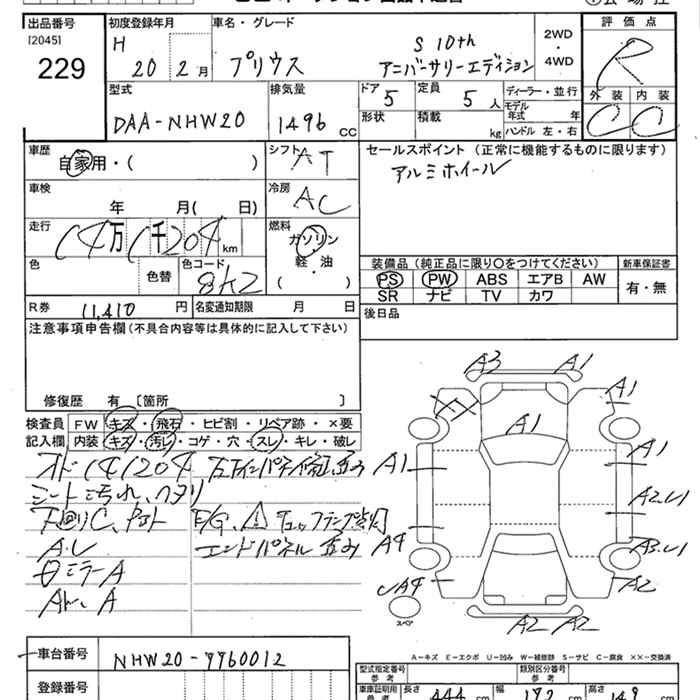 出品番号 初度登録年月 車名・グレード 評価点
[2045] H S 10th 2WD
229 20 2 月 プリウス アニバーサリーエディション ・4WD R
型式 排気量 ドア 定員 ディーラー・並行 外装 内装
DAA-NHW20 1496 CC 5 5 人 モデル年式 年 C C
形状 積載 kg ハンドル 左・右
車歴 自家用・( ) シフト AT セールスポイント (正常に機能するものに限ります)
アルミホイール
車検 年 月( 日) 冷房 AC
走行 14万1千204km 燃料 ガソリン・軽・油 ( )
色 色替 色コード 8K2
装備品 (純正品に限り○をつけてください) 新車保証書
PS PW ABS エアB AW 有・無
SR ナビ TV カワ
R券 11,410 円 名変通知期限 月 日 後日品
注意事項申告欄 (不具合内容等は具体的に記入して下さい)
修復歴 有 [箇所 ]
検査員 FW キズ・飛石・ヒビ割・リペア跡・×要
記入欄 内装 キズ・汚レ・コゲ・穴・スレ・キレ・破レ
オド141204
シート汚れ、ヘタリ
下回りC、
エンドパネル歪み
A.L
ミラーA
A
A3 A1
A1
A1
A1 A1
A2.U1
A4 A3.U1
A4 A2
A2 A2
スペア
A-キズ E-エクボ U-凹み W-補修跡 S-サビ C-腐食 ××-交換済
車台番号 NHW20-7960012
登録番号
型式指定番号 参考 類別区分番号 参考
車庫証明用 参考 長さ 444 cm 幅 172 cm 高さ 149 cm